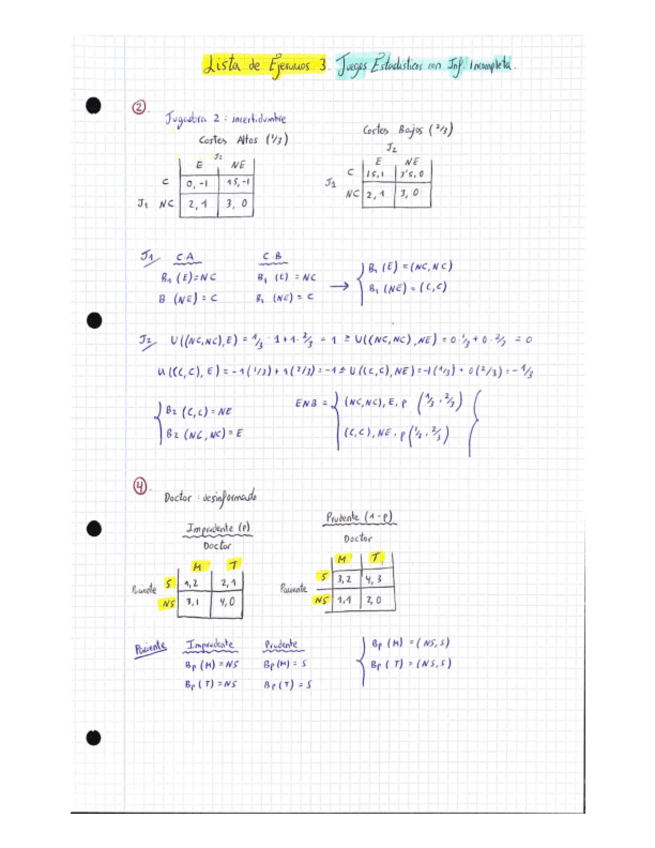 Lista de Ejercicios 3. Juegos Estadísticos con Inf. Incompleta.
②.
Jugadora 2 : incertidumbre
Costes Altos (1/3)
J2
E NE
C 0, -1 15, -1
J1 NC 2, 1 3, 0
Costes Bajos (2/3)
J2
E NE
C 15, 1 3'5, 0
J1
NC 2, 1 3, 0
J1 C.A C.B
B1 (E) = NC B1 (E) = NC
B (NE) = C B1 (NE) = C
→ B1 (E) = (NC, NC)
B1 (NE) = (C, C)
J2 U((NC,NC), E) = 1/3 · 1 + 1 · 2/3 = 1 ≥ U((NC,NC), NE) = 0 · 1/3 + 0 · 2/3 = 0
U((C,C), E) = -1 (1/3) + 1 (2/3) = -1 ± U((C,C), NE) = -1 (1/3) + 0 (2/3) = -1/3
B2 (C,C) = NE
B2 (NC,NC) = E
ENB = (NC,NC), E, p (1/3, 2/3)
(C,C), NE, p (1/3, 2/3)
④.
Doctor : desinformado
Imprudente (p)
Doctor
M T
Paciente S 1, 2 2, 1
NS 3, 1 4, 0
Prudente (1-p)
Doctor
M T
S 3, 2 4, 3
Paciente
NS 1, 1 2, 0
Paciente Imprudente Prudente
Bp (M) = NS Bp (M) = S
Bp (T) = NS Bp (T) = S
Bp (M) = (NS, S)
Bp (T) = (NS, S)